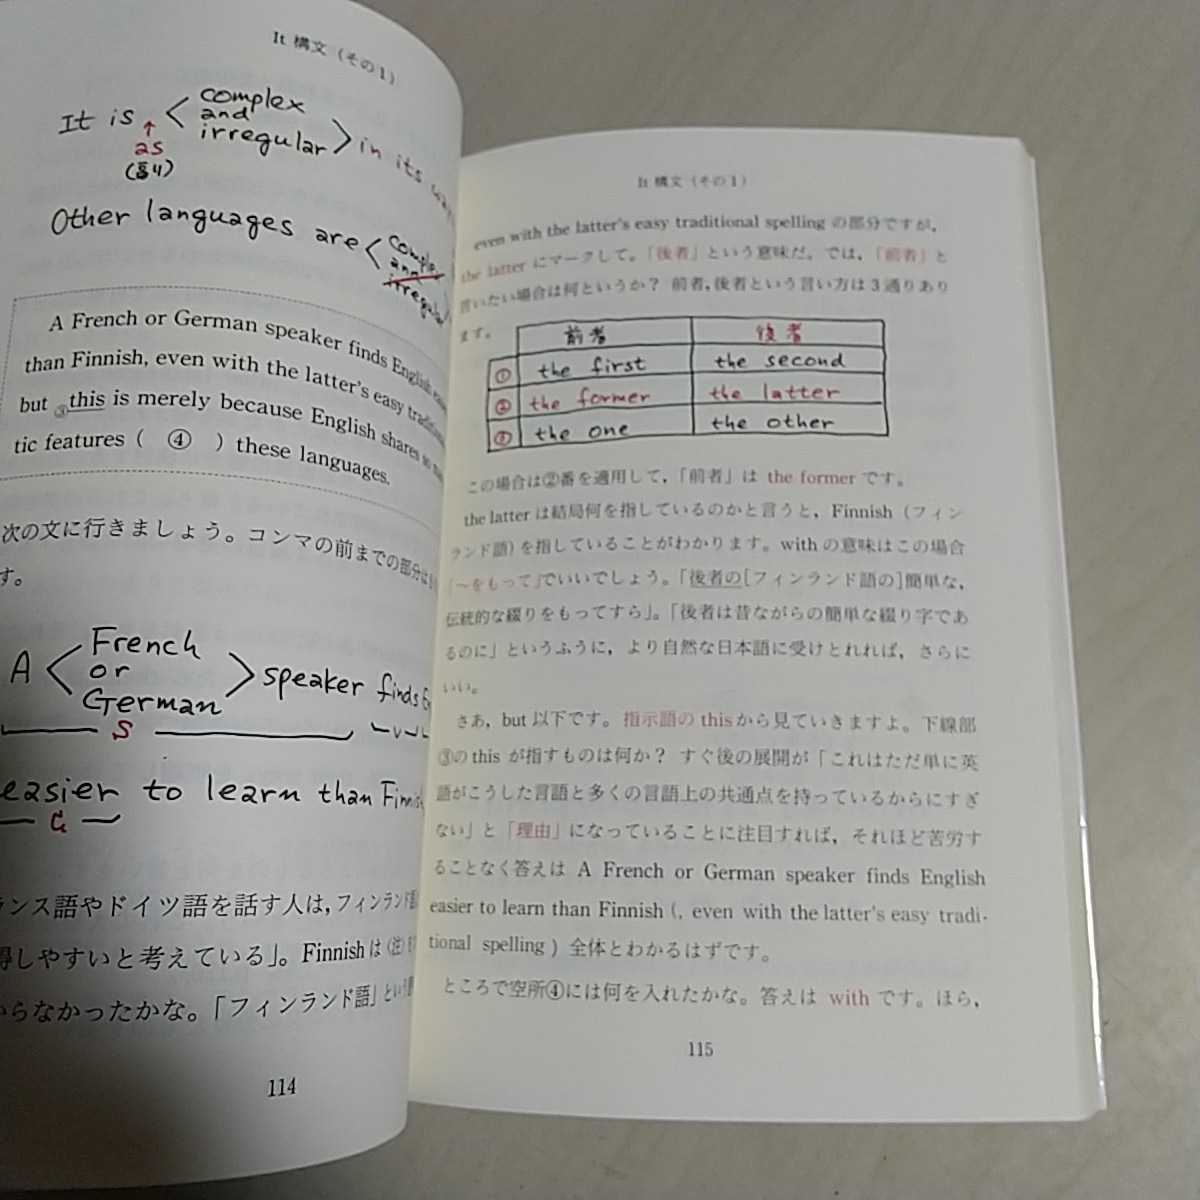 It 構文（その1）
It is < complex
and
irregular > in its
↑
as
(副)
Other languages are <
and
A French or German speaker finds English
than Finnish, even with the latter's easy
but ③this is merely because English shares so
tic features ( ④ ) these languages.
次の文に行きましょう。コンマの前までの部分は
す。
A < French
or
German > speaker finds
S
V
easier to learn than
C
ランス語やドイツ語を話す人は，フィンランド
得しやすいと考えている」。Finnishは（注）
からなかったかな。「フィンランド語」という
114
It 構文（その1）
even with the latter's easy traditional spelling の部分ですが，
the latter にマークして。「後者」という意味だ。では，「前者」と
言いたい場合は何というか？ 前者，後者という言い方は3通りあり
ます。
前者 後者
① the first the second
② the former the latter
③ the one the other
この場合は②番を適用して，「前者」は the former です。
the latter は結局何を指しているのかと言うと，Finnish（フィン
ランド語）を指していることがわかります。with の意味はこの場合
「～をもって」でいいでしょう。「後者の[フィンランド語の]簡単な，
伝統的な綴りをもってすら」。「後者は昔ながらの簡単な綴り字であ
るのに」というふうに，より自然な日本語に受けとれれば，さらに
いい。
さあ，but 以下です。指示語の this から見ていきますよ。下線部
③の this が指すものは何か？ すぐ後の展開が「これはただ単に英
語がこうした言語と多くの言語上の共通点を持っているからにすぎ
ない」と「理由」になっていることに注目すれば，それほど苦労す
ることなく答えは A French or German speaker finds English
easier to learn than Finnish (, even with the latter's easy tradi-
tional spelling ) 全体とわかるはずです。
ところで空所④には何を入れたかな。答えは with です。ほら，
115